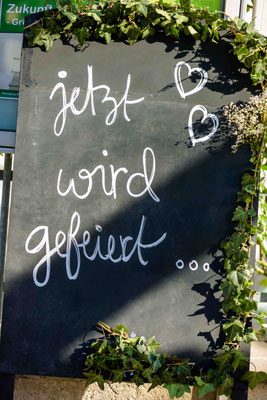 Zukunft
jetzt
wird
gefeiert ...